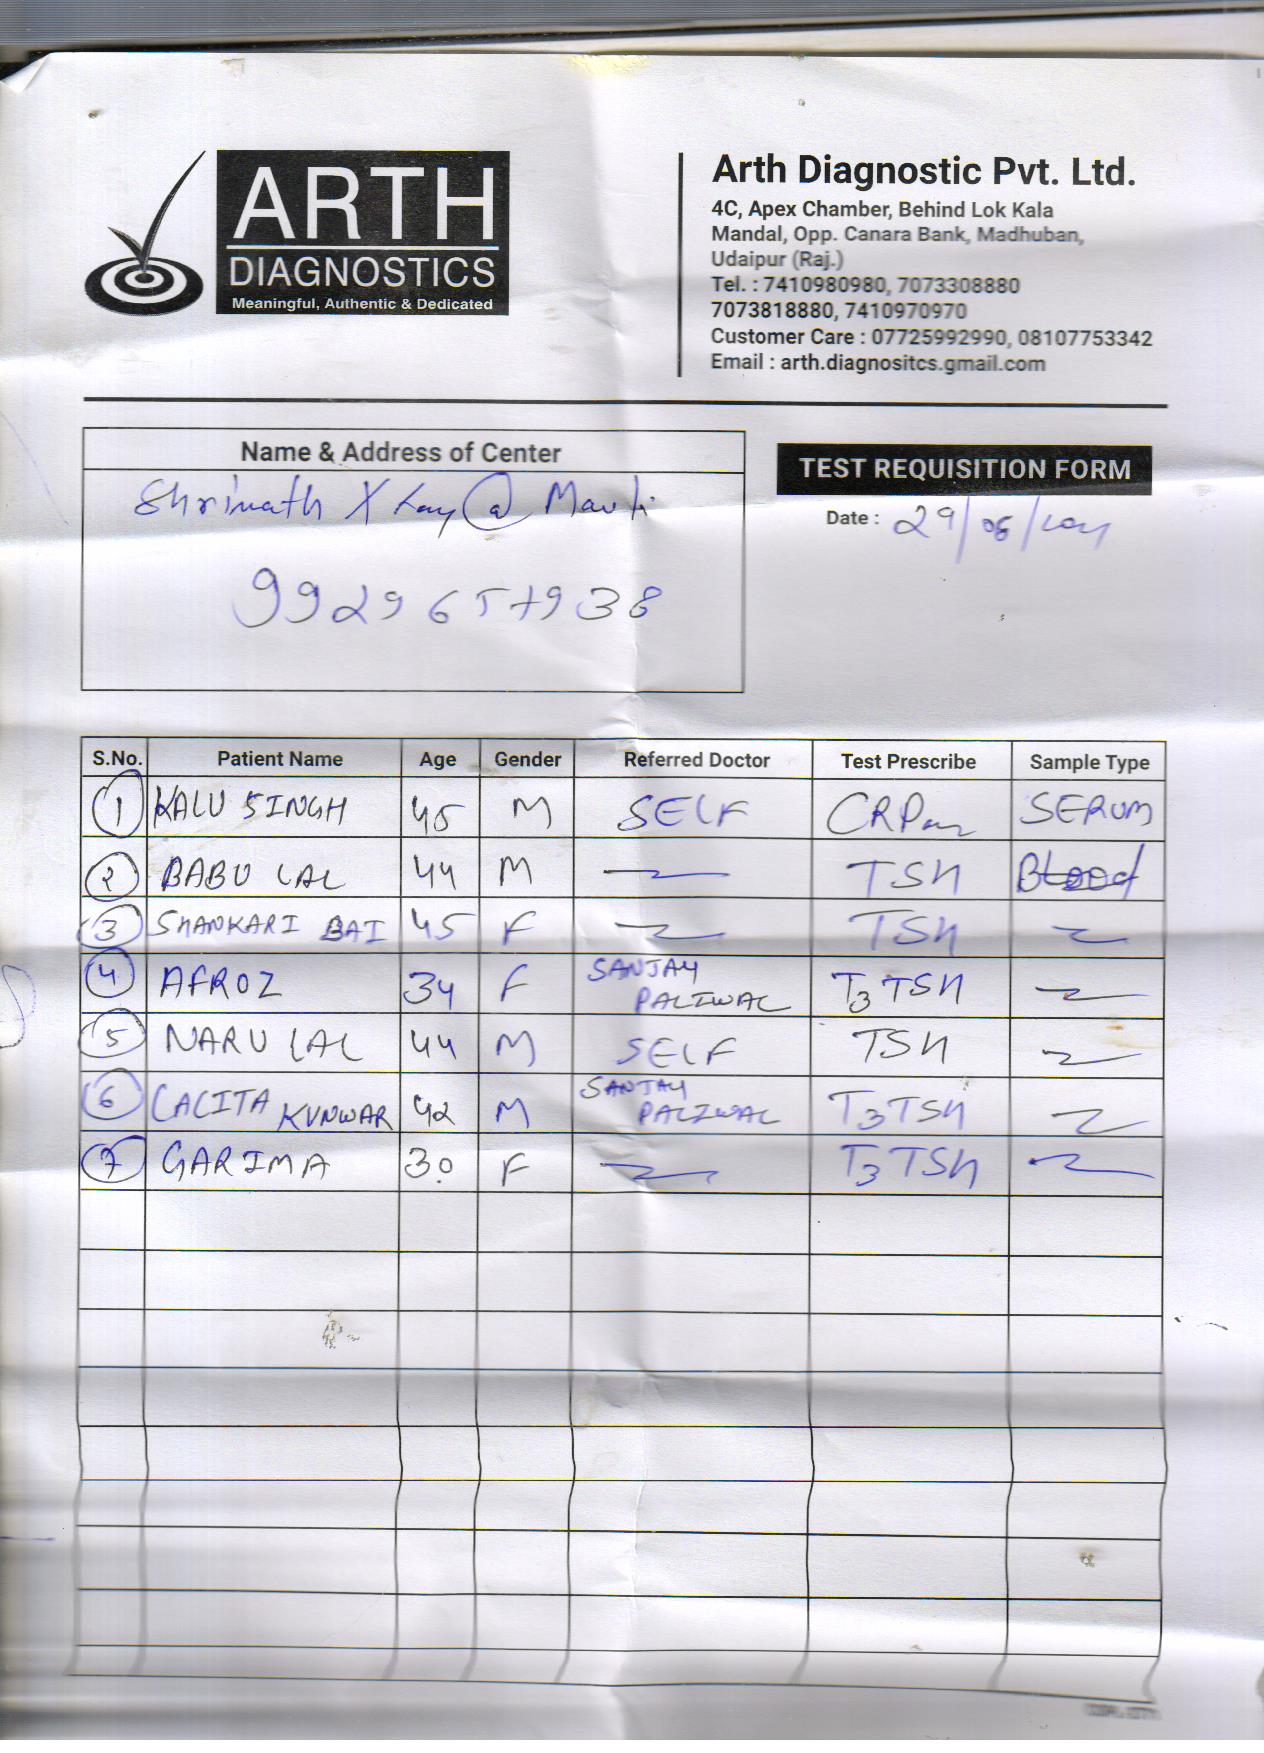 ARTH
DIAGNOSTICS
Meaningful, Authentic & Dedicated
Arth Diagnostic Pvt. Ltd.
4C, Apex Chamber, Behind Lok Kala
Mandal, Opp. Canara Bank, Madhuban,
Udaipur (Raj.)
Tel. : 7410980980, 7073308880
7073818880, 7410970970
Customer Care : 07725992990, 08107753342
Email : arth.diagnositcs.gmail.com
Name & Address of Center
Shrinath X Ray @ Mavli
TEST REQUISITION FORM
Date : 29/08/
9929657938
S.No. Patient Name Age Gender Referred Doctor Test Prescribe Sample Type
1 KALU SINGH 45 M SELF CRP SERUM
2 BABU LAL 44 M TSH Blood
3 SHANKARI BAI 45 F TSH
4 AFROZ 34 F SANJAY PALIWAL T3 TSH
5 NARU LAL 44 M SELF TSH
6 LALITA KUNWAR 42 M SANJAY PALIWAL T3 TSH
7 GARIMA 30 F T3 TSH